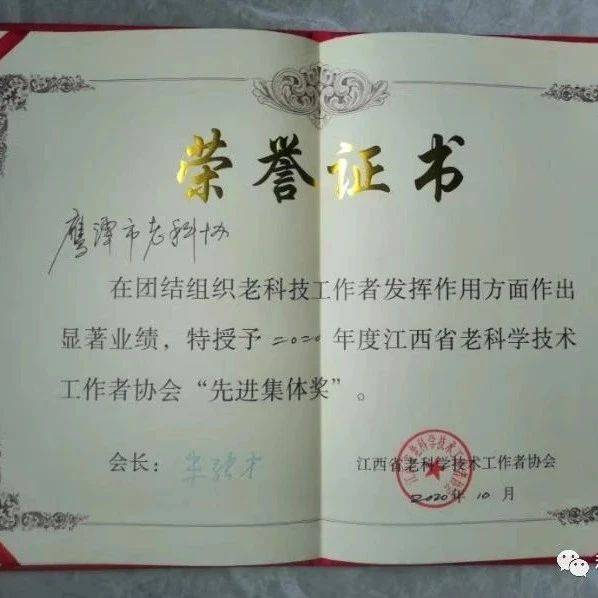 荣誉证书
鹰潭市老科协
在团结组织老科技工作者发挥作用方面作出
显著业绩，特授予2020年度江西省老科学技术
工作者协会“先进集体奖”。
会长：
江西省老科学技术工作者协会
2020年10月